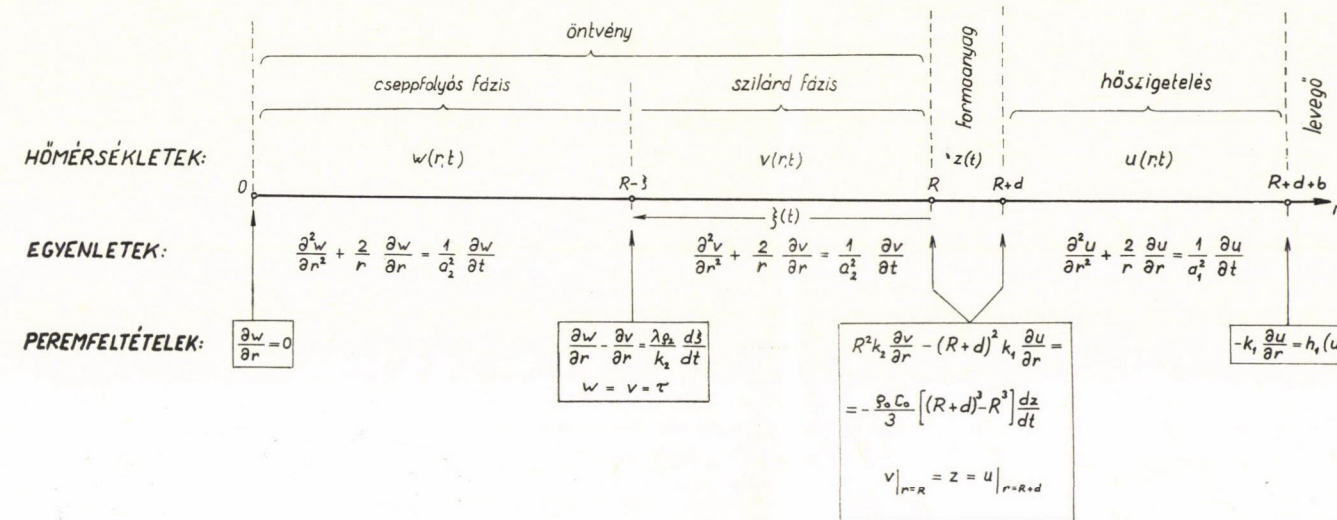 öntvény
cseppfolyós fázis szilárd fázis formaanyag hőszigetelés levegő
HŐMÉRSÉKLETEK: w(r,t) v(r,t) z(t) u(r,t)
0 R-ξ R R+d R+d+b
ξ(t)
EGYENLETEK: ∂²w/∂r² + 2/r ∂w/∂r = 1/a₂² ∂w/∂t ∂²v/∂r² + 2/r ∂v/∂r = 1/a₂² ∂v/∂t ∂²u/∂r² + 2/r ∂u/∂r = 1/a₁² ∂u/∂t
PEREMFELTÉTELEK: ∂w/∂r = 0
∂w/∂r - ∂v/∂r = λρ₂/k₂ dξ/dt
w = v = τ
R²k₂ ∂v/∂r - (R+d)² k₁ ∂u/∂r =
= - ρ₀C₀/3 [(R+d)³-R³] dz/dt
v|r=R = z = u|r=R+d
-k₁ ∂u/∂r = h₁(u